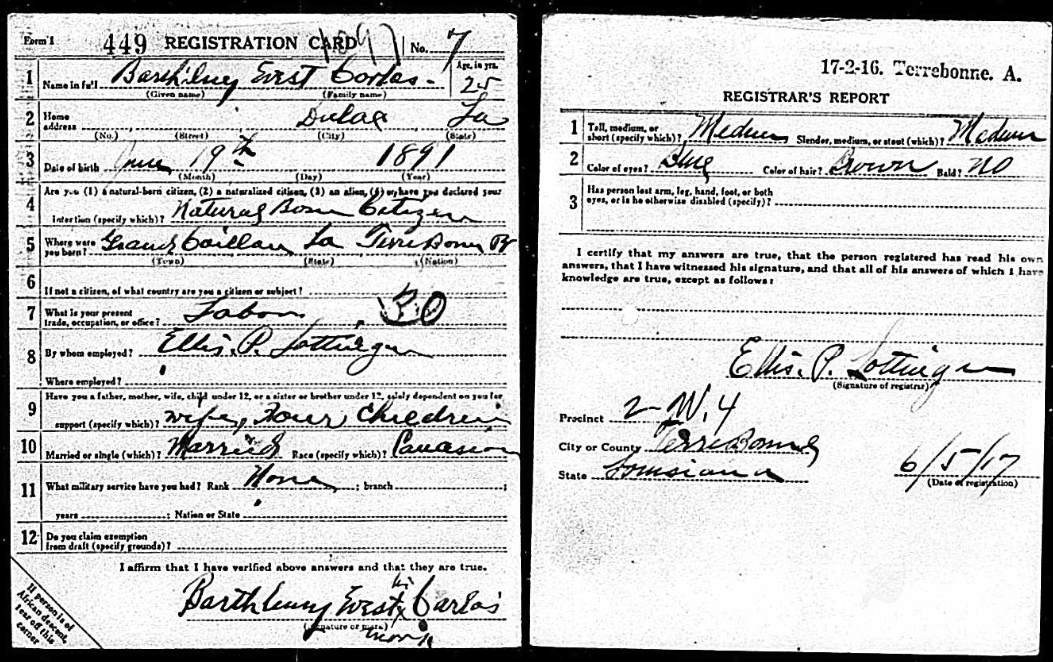 Form 1 449 REGISTRATION CARD No. 7
1 Name in full Barthilmy Evist Carlos Age, in yrs. 25
(Given name) (Family name)
2 Home address Dulac La
(No.) (Street) (City) (State)
3 Date of birth June 19th 1891
(Month) (Day) (Year)
4 Are you (1) a natural-born citizen, (2) a naturalized citizen, (3) an alien, (4) or have you declared your
intention (specify which)? Natural Born Citizen
5 Where were you born? Grand Caillou La Terrebonne
(Town) (State) (Nation)
6 If not a citizen, of what country are you a citizen or subject?
7 What is your present trade, occupation, or office? Labor
8 By whom employed? Ellis. P. Lottinger
Where employed?
9 Have you a father, mother, wife, child under 12, or a sister or brother under 12, solely dependent on you for
support (specify which)? wife, Four Children
10 Married or single (which)? Married Race (specify which)? Caucasion
11 What military service have you had? Rank None ; branch ;
years ; Nation or State
12 Do you claim exemption from draft (specify grounds)?
I affirm that I have verified above answers and that they are true.
Barthlemy Evist Carlos
(Signature or mark)
If person is of African descent, tear off this corner
17-2-16. Terrebonne. A.
REGISTRAR'S REPORT
1 Tall, medium, or short (specify which)? Medium Slender, medium, or stout (which)? Medium
2 Color of eyes? Blue Color of hair? Brown Bald? NO
3 Has person lost arm, leg, hand, foot, or both eyes, or is he otherwise disabled (specify)?
I certify that my answers are true, that the person registered has read his own
answers, that I have witnessed his signature, and that all of his answers of which I have
knowledge are true, except as follows:
Ellis. P. Lottinger
(Signature of registrar)
Precinct 2 W. 4
City or County Terrebonne
State Louisiana
6/5/17
(Date of registration)